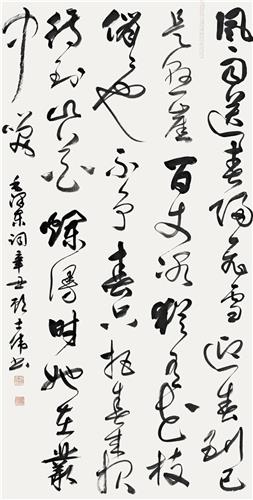 風雨送春歸飛雪迎春到已
是懸崖百丈冰猶有花枝
俏〻也不争春只把春來報
待到山花爛漫時她在叢
中笑
毛澤東詞辛丑士偉书